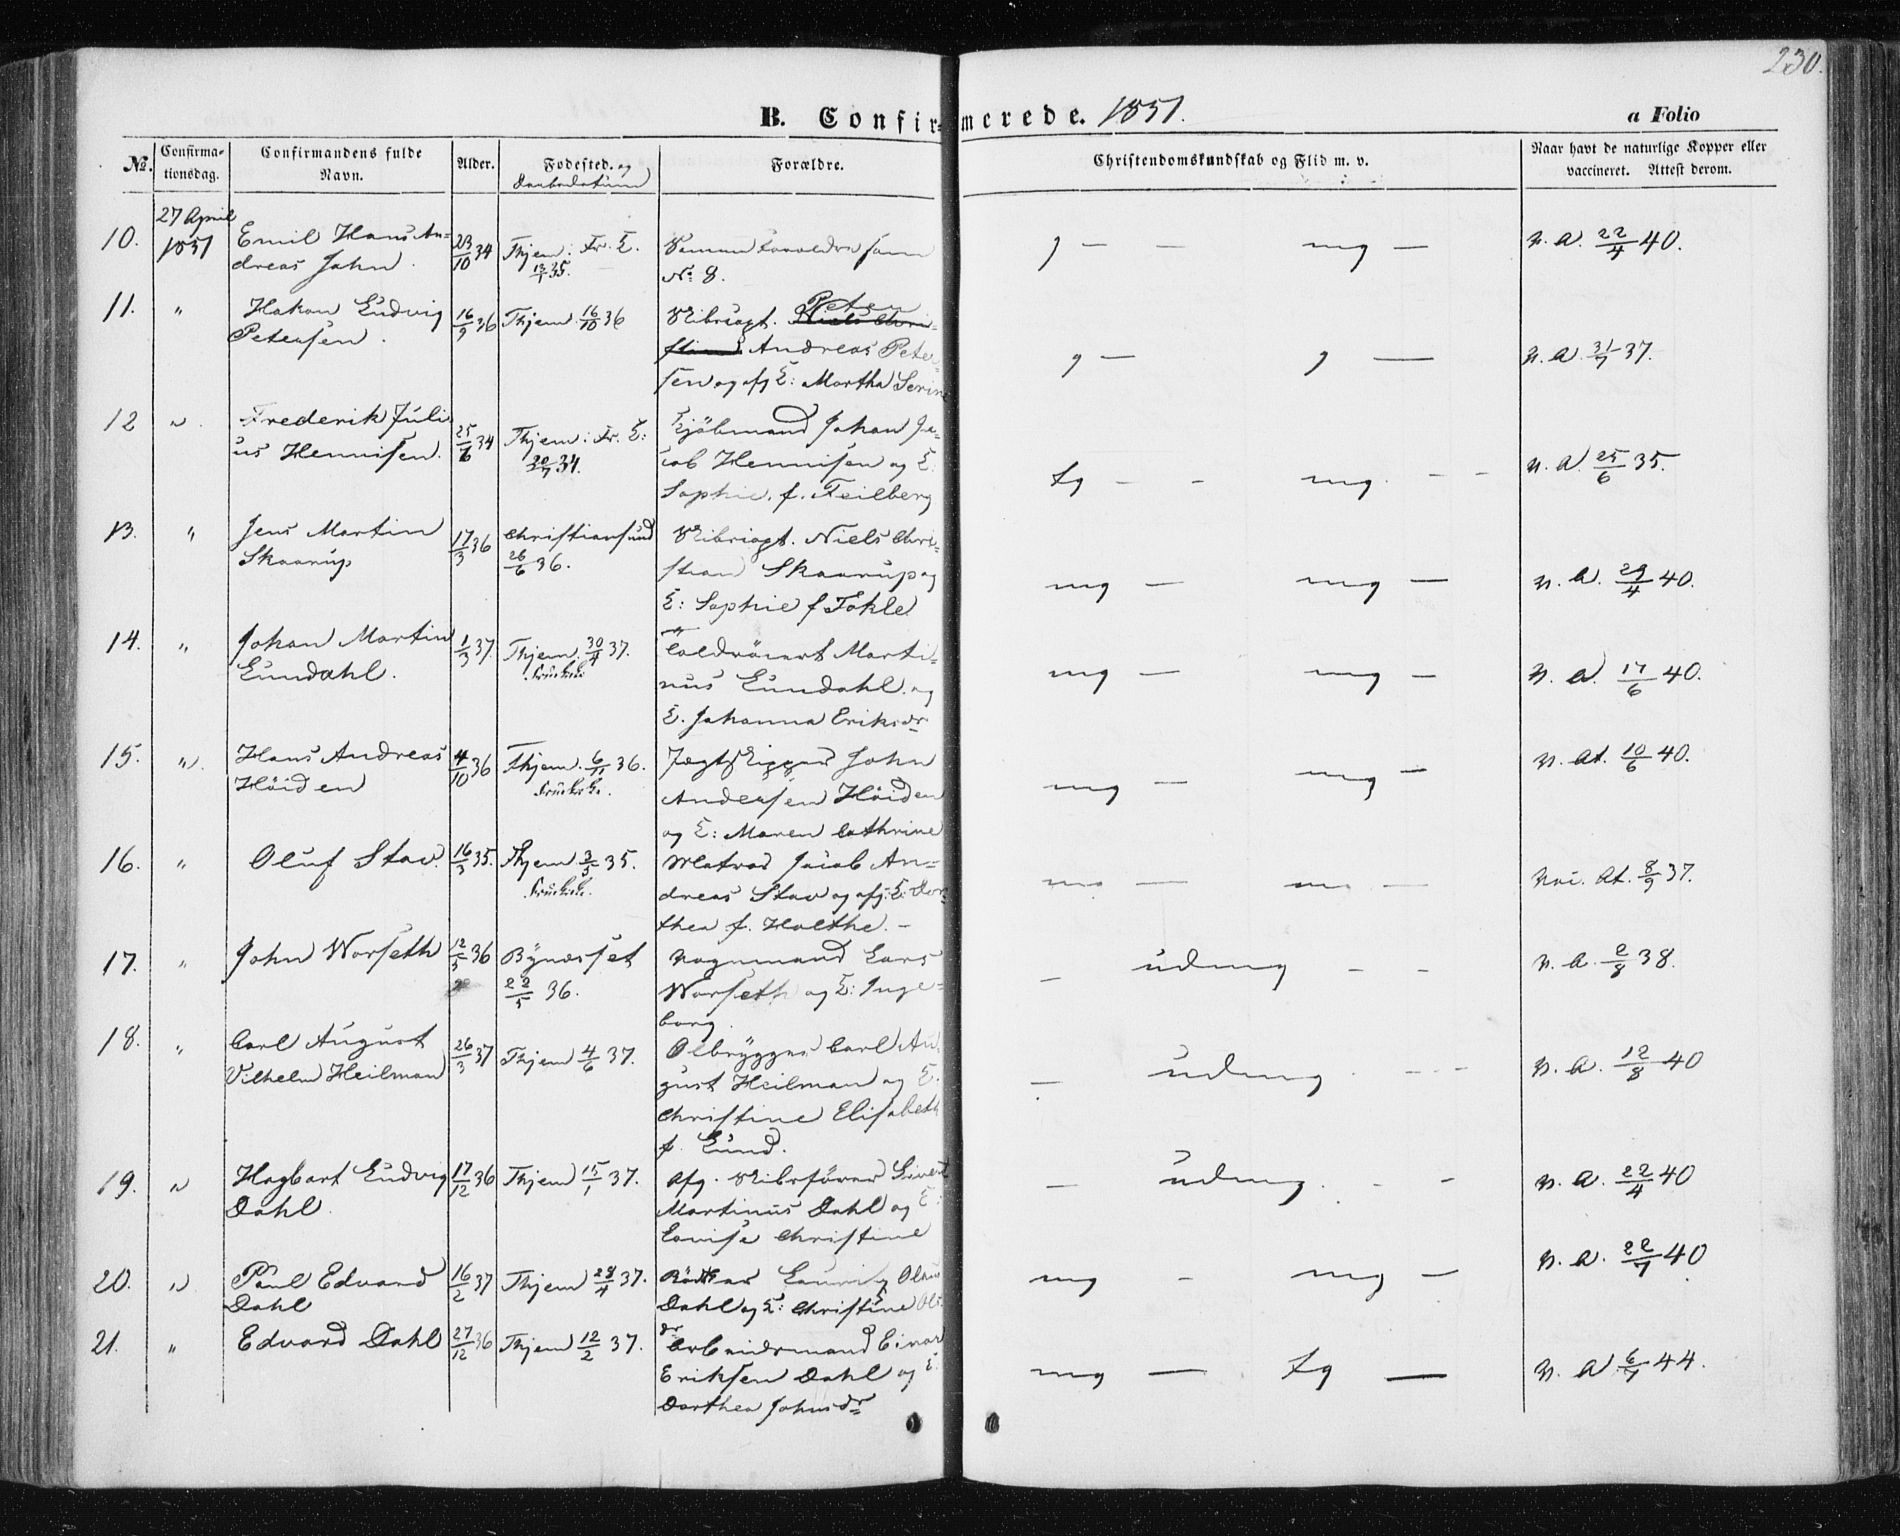 230.
B. Confirmerede. 1851.
a Folio
No. Confirmationsdag. Confirmandens fulde Navn. Alder. Fødested. og Daabsdatum Forældre. Christendomskundskab og Flid m. v. Naar havt de naturlige Kopper eller vaccineret. Attest derom.
10. 27 April 1851 Emil Hans Andreas Jahn. 23/10 34 Thjem: Fr. K. 13/1 35. Samme Forældre som No 8. g — — mg — v. a. 22/4 40.
11. " Hakon Ludvig Petersen. 16/9 36 Thjem. 16/10 36 Peter Andreas Petersen og afg K: Martha Serine g — g — v. a. 31/7 37.
12 " Frederik Julius Hennisen. 25/6 34 Thjem: Fr. K: 20/7 34. Kjöbmand Johan Jacob Hennisen og K. Sophie. f. Feilberg tg - - mg. - - v. a. 25/6 35.
13. " Jens Martin Skaarup 17/3 36 Christiansund 26/6 36. Niels Christian Skaarup og K: Sophie f Fohle mg — mg — v. a. 29/4 40.
14. " Johan Martin Lundahl. 1/3 37. Thjem. 30/4 37. Martinus Lundahl. og K. Johanna Eriksdr mg — mg — v. a. 17/6 40.
15. " Hans Andreas Höiden 4/10 36 Thjem. 6/11 36. Jagtskipper John Andersen Höiden og K: Maren Cathrine mg — mg — v. At. 10/6 40.
16. " Oluf Stav. 16/3 35. Thjem 3/5 35. Matros Jacob Andreas Stav og afg: K: Dorthea f. Holthe. — mg — mg — At. 8/9 37.
17. " John Worseth 12/5 36 Bynesset 22/5 36. Vognmand Lars Worseth og K: Ingeborg. — udmg — - v. a. 2/8 38.
18. " Carl August Vilhelm Heilman 26/3 37 Thjem 4/6 37. Ölbrygger Carl August Heilman og K. Christine Elisabeth f. Lund. — udmg - - - v. a. 12/8 40
19. " Hagbart Ludvig Dahl. 17/12 36 Thjem 15/1 37. Afg. Sivert Martinus Dahl og K: Lovise Christine — udmg. - - v. a. 22/4 40
20. " Paul Edvard Dahl 16/2 37 Thjem 23/4 37. Lauritz Olaus Dahl og K: Christine Olsdr mg - mg — v. a. 22/7 40
21. " Edvard Dahl 27/12 36 Thjem 12/2 37. Arbeidsmand Einar Eriksen Dahl og K: Dorthea Johnsdr mg — tg — v. a 6/7 44.